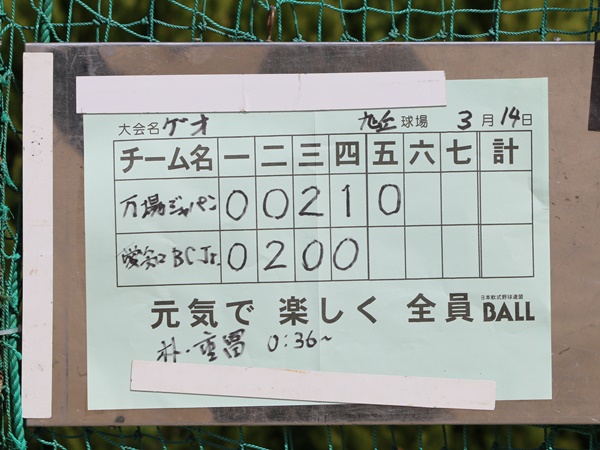 大会名 ゲオ 旭丘 球場 3月14日
チーム名 一 二 三 四 五 六 七 計
万場ジャパン 0 0 2 1 0
愛知BCJr. 0 2 0 0
日本軟式野球連盟
元気で 楽しく 全員 BALL
0:36~